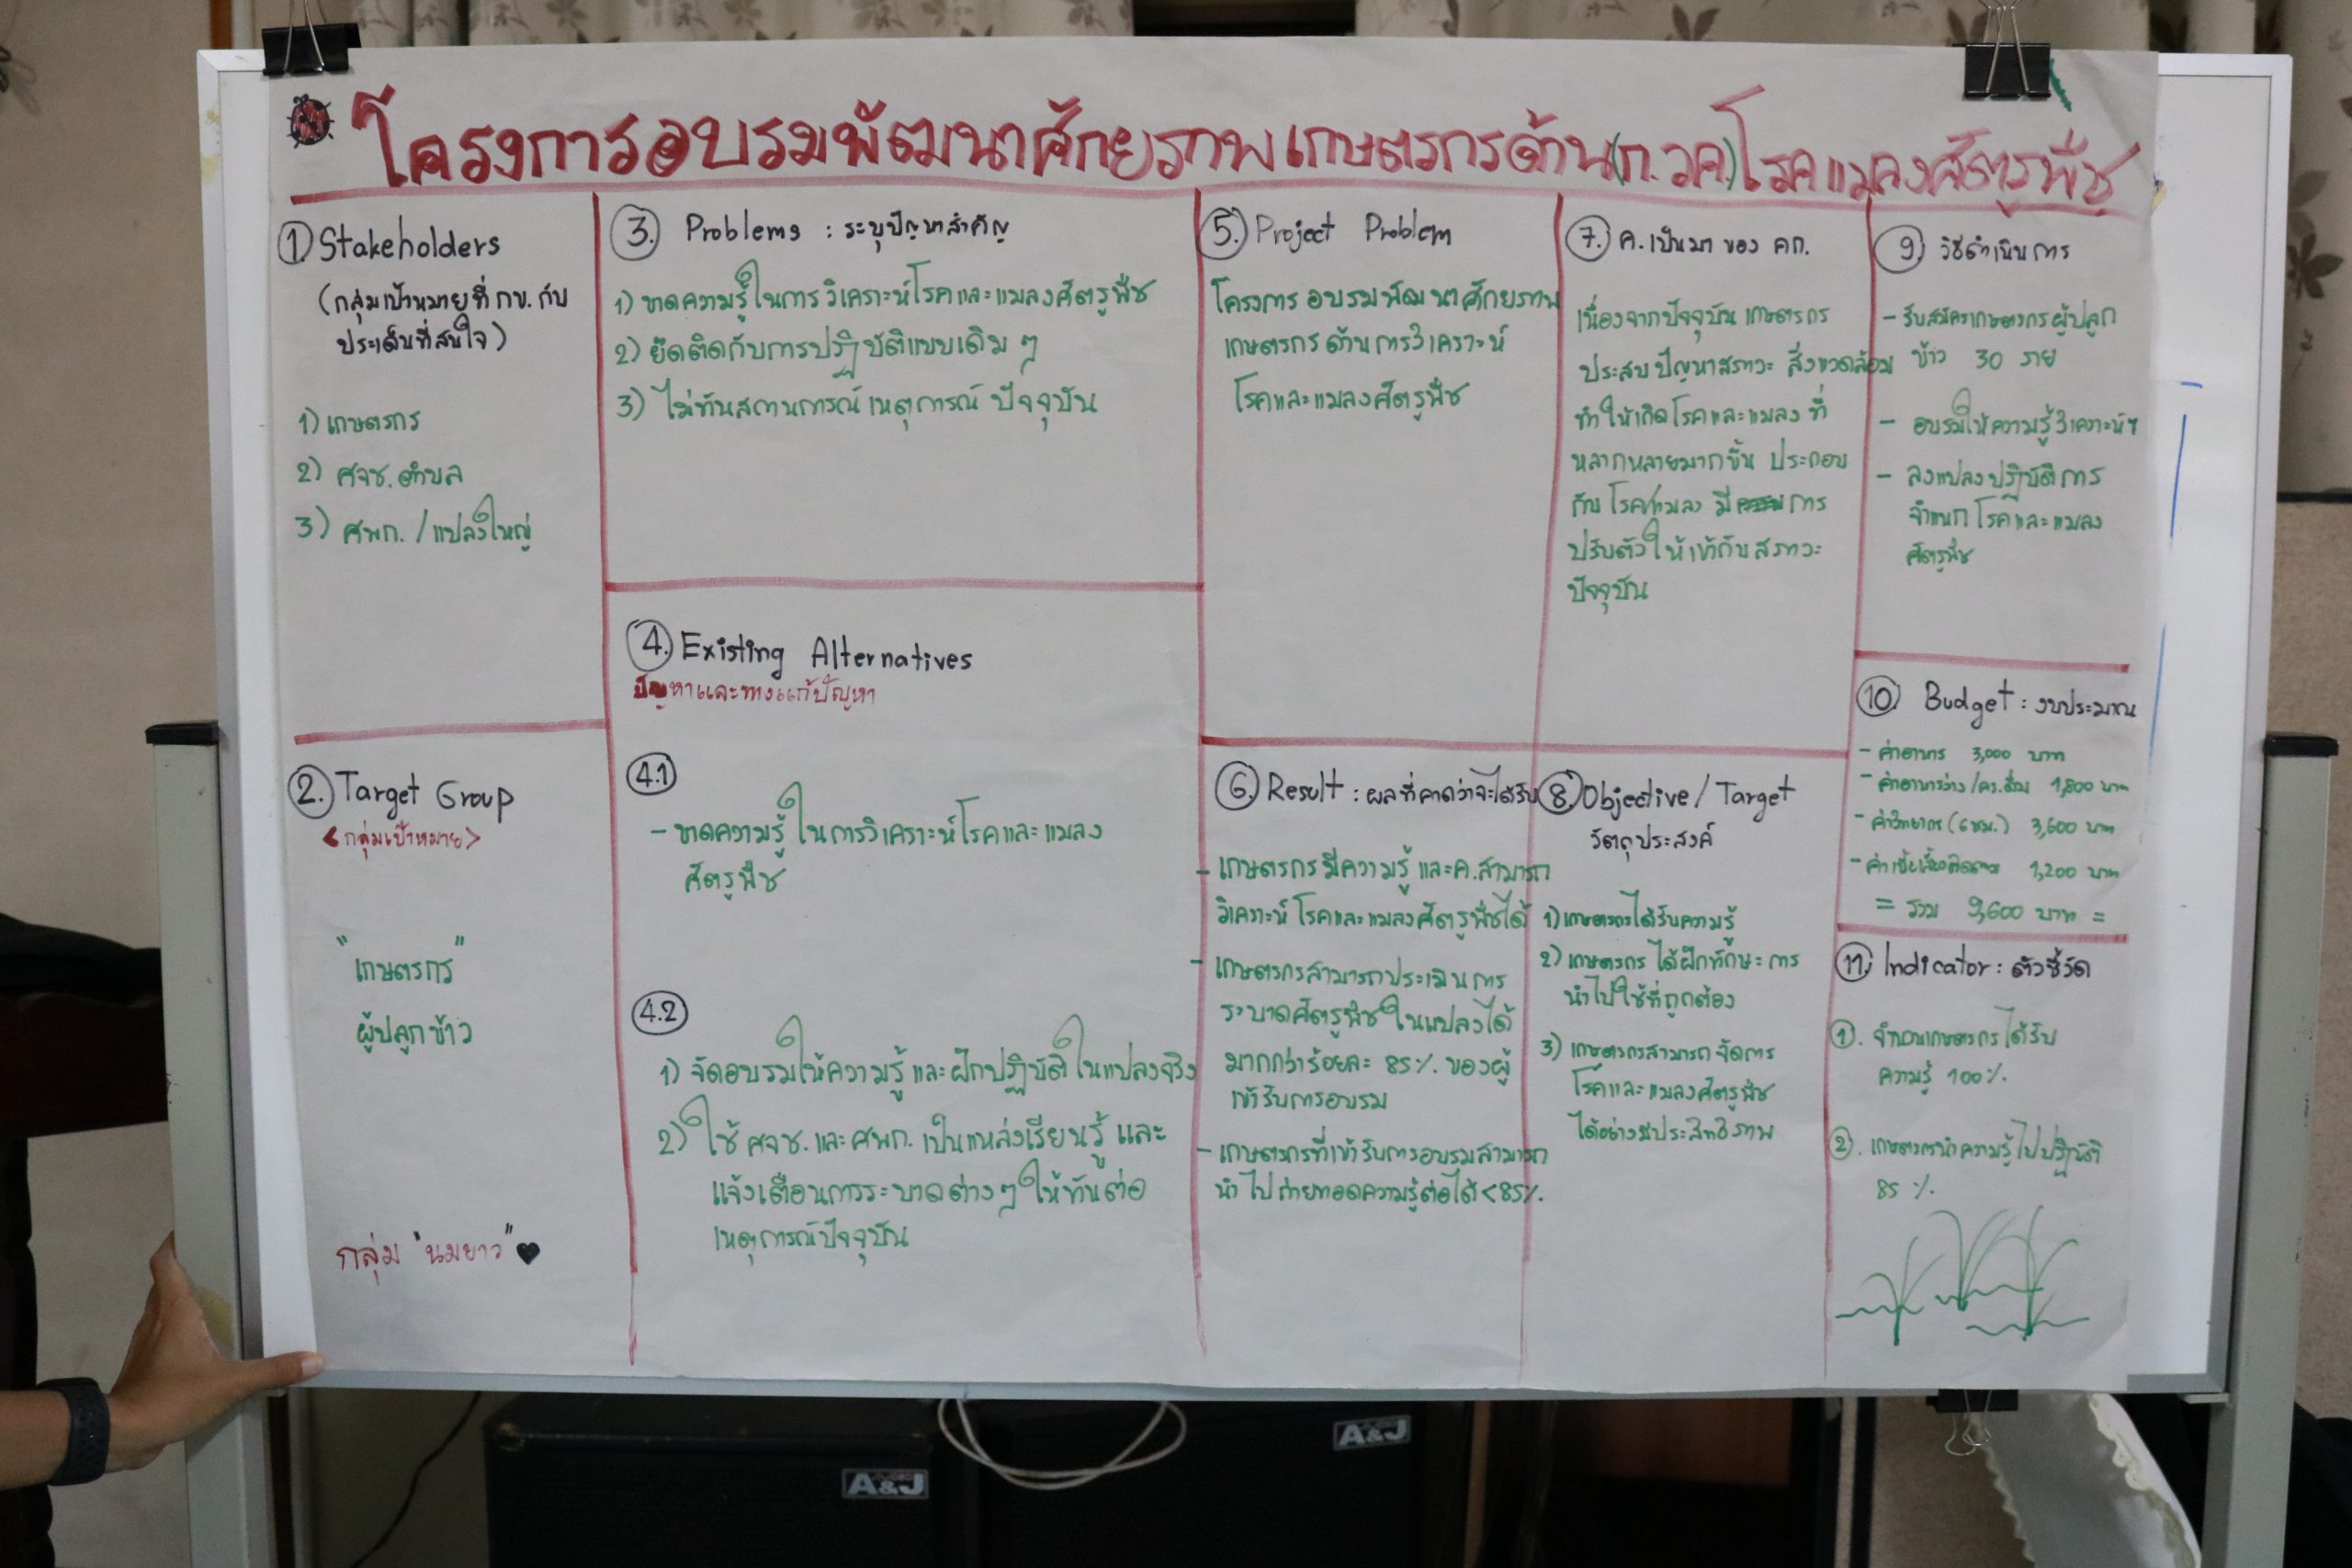 โครงการอบรมพัฒนาศักยภาพเกษตรกรด้าน(ก.วค.)โรคแมลงศัตรูพืช
1 Stakeholders
(กลุ่มเป้าหมายที่ กข. กับ
ประเด็นที่สนใจ)
1) เกษตรกร
2) ศจช. ตำบล
3) ศพก. / แปลงใหญ่
2. Target Group
<กลุ่มเป้าหมาย>
"เกษตรกร"
ผู้ปลูกข้าว
กลุ่ม "นมยาว"
3. Problems : ระบุปัญหาสำคัญ
1) ขาดความรู้ในการวิเคราะห์โรคและแมลงศัตรูพืช
2) ยึดติดกับการปฏิบัติแบบเดิม ๆ
3) ไม่ทันสถานการณ์ เหตุการณ์ ปัจจุบัน
4. Existing Alternatives
ปัญหาและทางแก้ปัญหา
4.1
- ขาดความรู้ในการวิเคราะห์โรคและแมลง
ศัตรูพืช
4.2
1) จัดอบรมให้ความรู้และฝึกปฏิบัติในแปลงจริง
2) ใช้ ศจช. และ ศพก. เป็นแหล่งเรียนรู้ และ
แจ้งเตือนการระบาดต่างๆ ให้ทันต่อ
เหตุการณ์ปัจจุบัน
5. Project Problem
โครงการ อบรมพัฒนาศักยภาพ
เกษตรกร ด้านการวิเคราะห์
โรคและแมลงศัตรูพืช
6. Result : ผลที่คาดว่าจะได้รับ
- เกษตรกรมีความรู้ และค.สามารถ
วิเคราะห์ โรคและแมลงศัตรูพืชได้
- เกษตรกรสามารถประเมินการ
ระบาดศัตรูพืชในแปลงได้
มากกว่าร้อยละ 85%. ของผู้
เข้ารับการอบรม
- เกษตรกรที่เข้ารับการอบรมสามารถ
นำไปถ่ายทอดความรู้ต่อได้ <85%.
7. ค.เป็นมา ของ คก.
เนื่องจากปัจจุบัน เกษตรกร
ประสบปัญหาสภาวะ สิ่งแวดล้อม
ทำให้เกิดโรคและแมลง ที่
หลากหลายมากขึ้น ประกอบ
กับ โรค/แมลง มีการ
ปรับตัวให้เข้ากับสภาวะ
ปัจจุบัน
8. Objective / Target
วัตถุประสงค์
1) เกษตรกรได้รับความรู้
2) เกษตรกร ได้ฝึกทักษะ การ
นำไปใช้ที่ถูกต้อง
3) เกษตรกรสามารถ จัดการ
โรคและแมลงศัตรูพืช
ได้อย่างมีประสิทธิภาพ
9. วิธีดำเนินการ
- รับสมัครเกษตรกรผู้ปลูก
ข้าว 30 ราย
- อบรมให้ความรู้วิเคราะห์ฯ
- ลงแปลงปฏิบัติการ
จำแนกโรคและแมลง
ศัตรูพืช
10 Budget : งบประมาณ
- ค่าอาหาร 3,000 บาท
- ค่าอาหารว่าง/คร.ดื่ม 1,800 บาท
- ค่าวิทยากร (6 ชม.) 3,600 บาท
1,200 บาท
= รวม 9,600 บาท =
11. Indicator : ตัวชี้วัด
1. จำนวนเกษตรกรได้รับ
ความรู้ 100%.
2. เกษตรกรนำความรู้ไปปฏิบัติ
85 %.
A&J
A&J